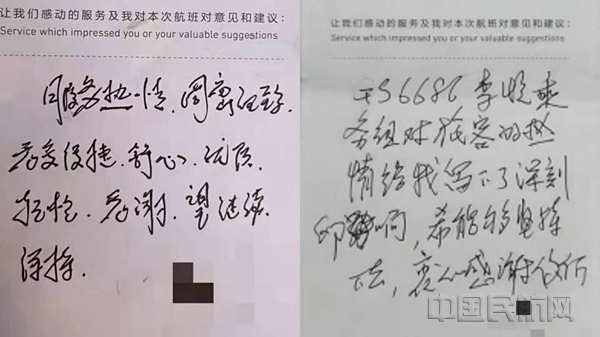 让我们感动的服务及我对本次航班对意见和建议：
Service which impressed you or your valuable suggestions
服务热情、周密细致、
便捷、舒心、优质、
感谢、望继续
保持。
让我们感动的服务及我对本次航班对意见和建议：
Service which impressed you or your valuable suggestions
6686 李晓
务组对旅客的热
情给我写下了深刻
印 啊，希能够坚持
下去，衷心感谢你们
中国民航网